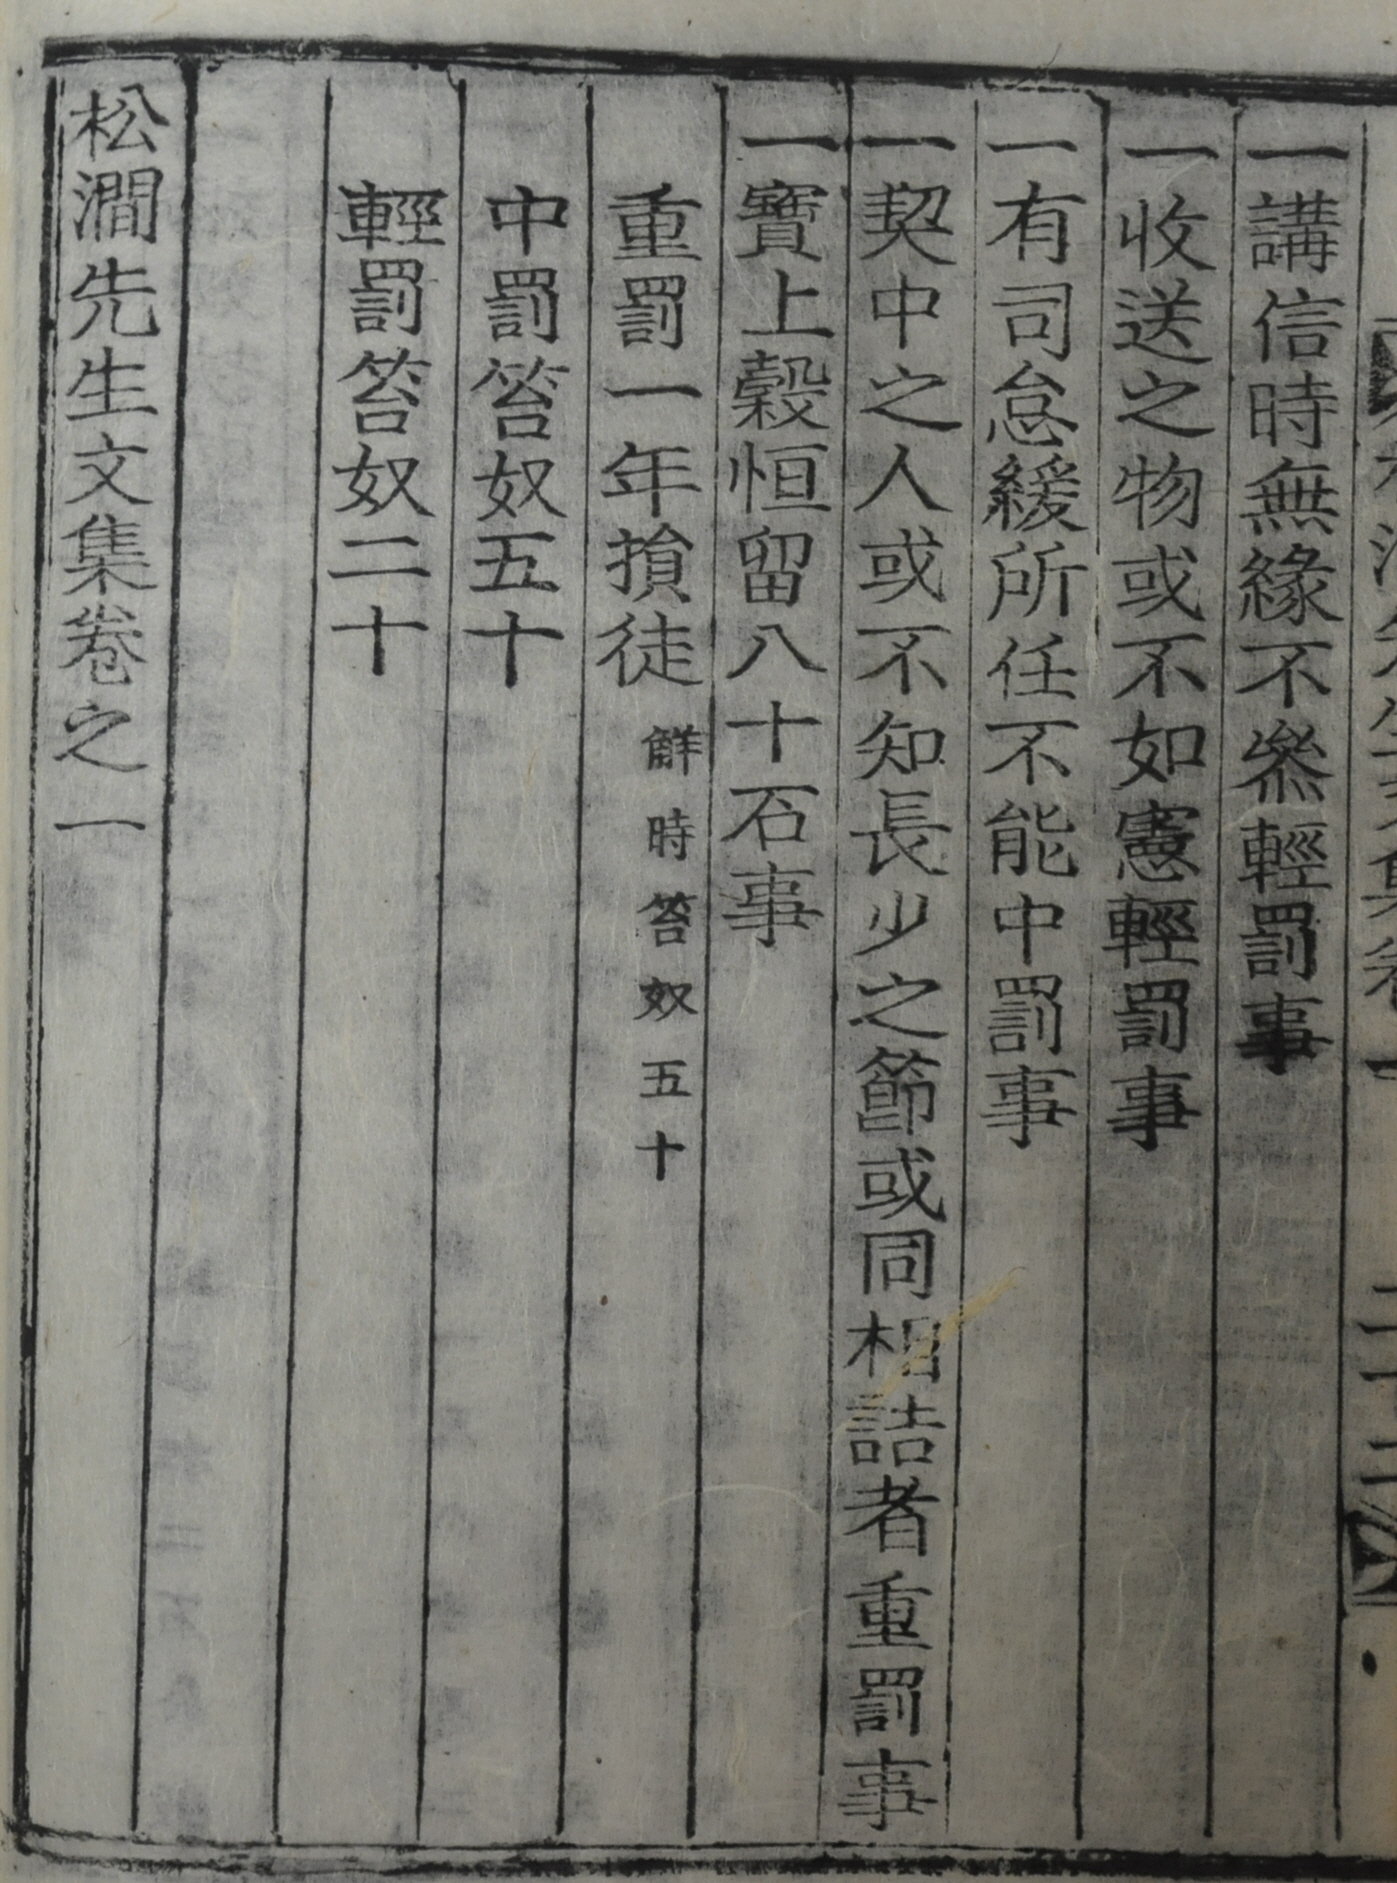 一講信時無緣不叅輕罰事
一收送之物或不如憲輕罰事
一有司怠緩所任不能中罰事
一契中之人或不知長少之節或同相詰者重罰事
一寶上穀恒留八十石事
重罰一年損徒觧時笞奴五十
中罰笞奴五十
輕罰笞奴二十
松澗先生文集卷之一